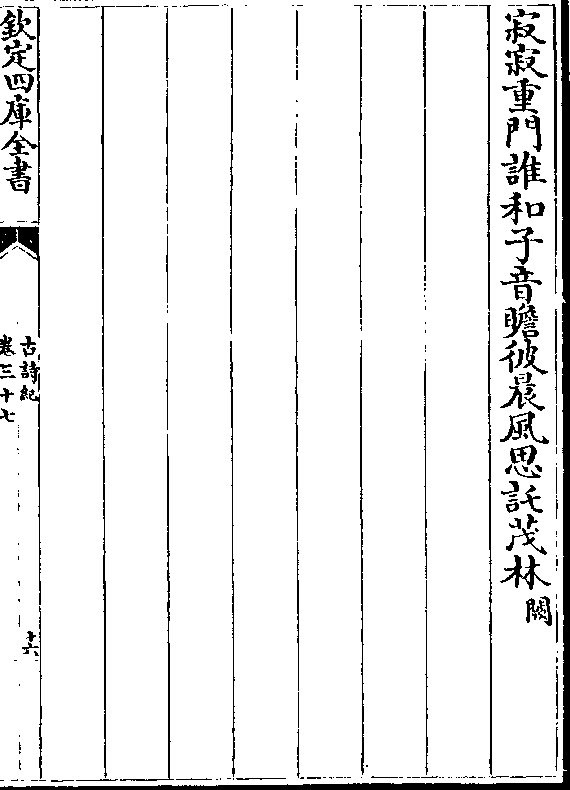 寂寂重門誰和子音瞻彼晨風思託茂林闕
欽定四庫全書
古詩紀
卷三十七
十六